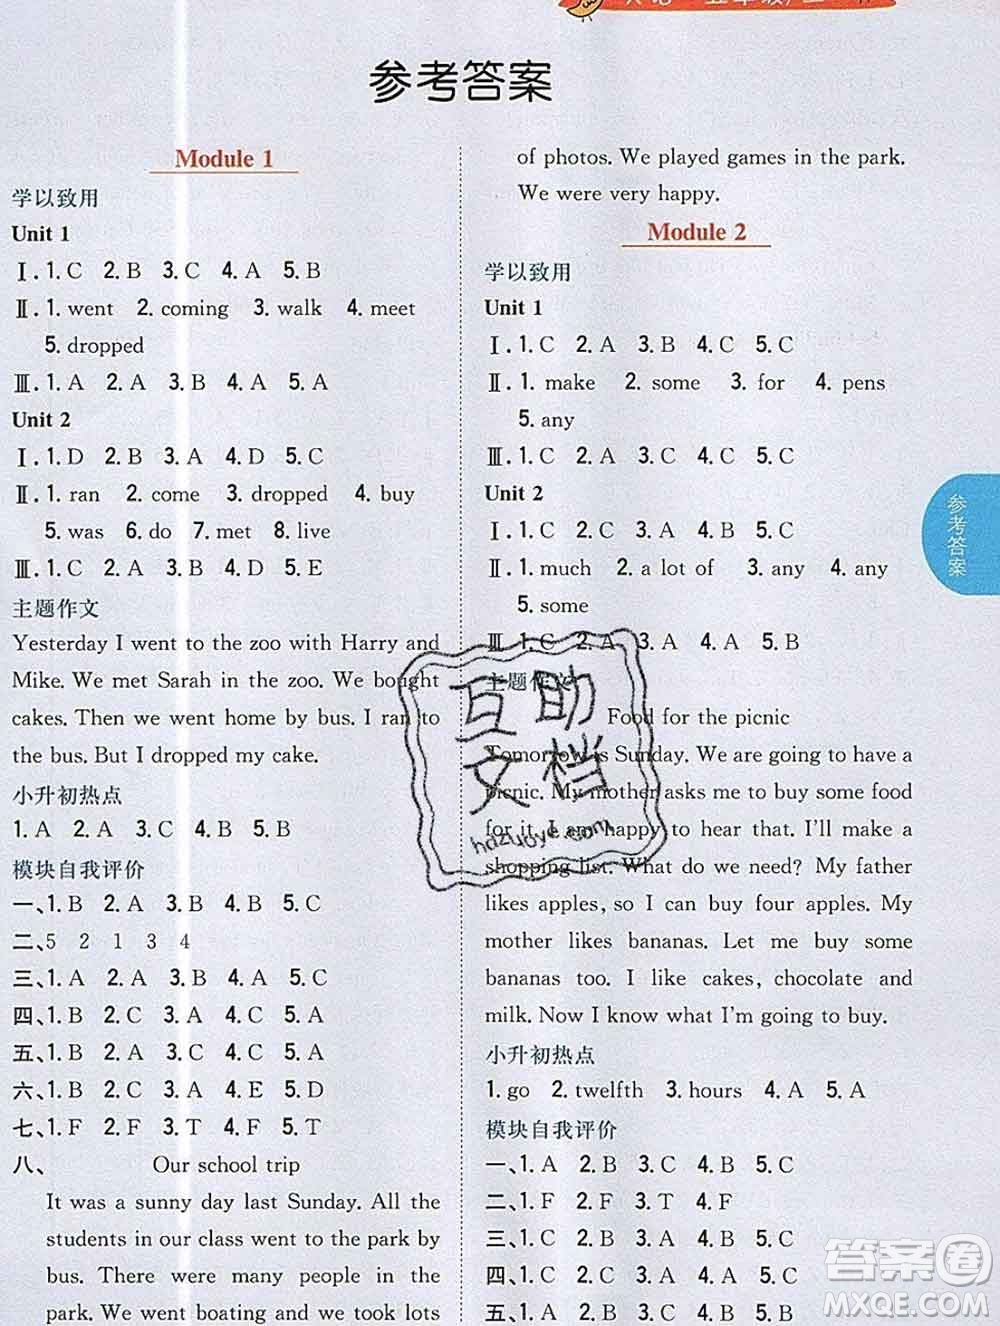 参考答案
Module 1
学以致用
Unit 1
Ⅰ. 1. C 2. B 3. C 4. A 5. B
Ⅱ. 1. went 2. coming 3. walk 4. meet
5. dropped
Ⅲ. 1. A 2. A 3. B 4. A 5. A
Unit 2
Ⅰ. 1. D 2. B 3. A 4. D 5. C
Ⅱ. 1. ran 2. come 3. dropped 4. buy
5. was 6. do 7. met 8. live
Ⅲ. 1. C 2. B 3. A 4. D 5. E
主题作文
Yesterday I went to the zoo with Harry and
Mike. We met Sarah in the zoo. We bought
cakes. Then we went home by bus. I ran to
the bus. But I dropped my cake.
小升初热点
1. A 2. A 3. C 4. B 5. B
模块自我评价
一、1. B 2. A 3. A 4. B 5. C
二、5 2 1 3 4
三、1. A 2. A 3. B 4. A 5. C
四、1. B 2. C 3. A 4. C 5. A
五、1. B 2. A 3. C 4. B 5. C
六、1. B 2. C 3. A 4. E 5. D
七、1. F 2. F 3. T 4. F 5. T
八、 Our school trip
It was a sunny day last Sunday. All the
students in our class went to the park by
bus. There were many people in the
park. We went boating and we took lots
of photos. We played games in the park.
We were very happy.
Module 2
学以致用
Unit 1
Ⅰ. 1. C 2. A 3. B 4. C 5. C
Ⅱ. 1. make 2. some 3. for 4. pens
5. any
Ⅲ. 1. C 2. A 3. B 4. C 5. A
Unit 2
Ⅰ. 1. C 2. C 3. A 4. C 5. B
Ⅱ. 1. much 2. a lot of 3. any 4. any
5. some
Ⅲ. 1. C 2. A 3. A 4. A 5. B
主题作文
Food for the picnic
Tomorrow is Sunday. We are going to have a
picnic. My mother asks me to buy some food
for it. I am happy to hear that. I'll make a
shopping list. What do we need? My father
likes apples, so I can buy four apples. My
mother likes bananas. Let me buy some
bananas too. I like cakes, chocolate and
milk. Now I know what I'm going to buy.
小升初热点
1. go 2. twelfth 3. hours 4. A 5. A
模块自我评价
一、1. A 2. B 3. C 4. B 5. C
二、1. F 2. F 3. T 4. F
三、1. C 2. A 3. B 4. C 5. C
四、1. C 2. B 3. A 4. C 5. A
五、1. C 2. A 3. C 4. A 5. B
参考答案
互助
文档
hdzuoye.com
答案圈
MXQE.COM